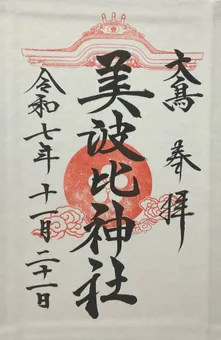 大高 奉拝
美波比神社
令和七年十一月二十一日